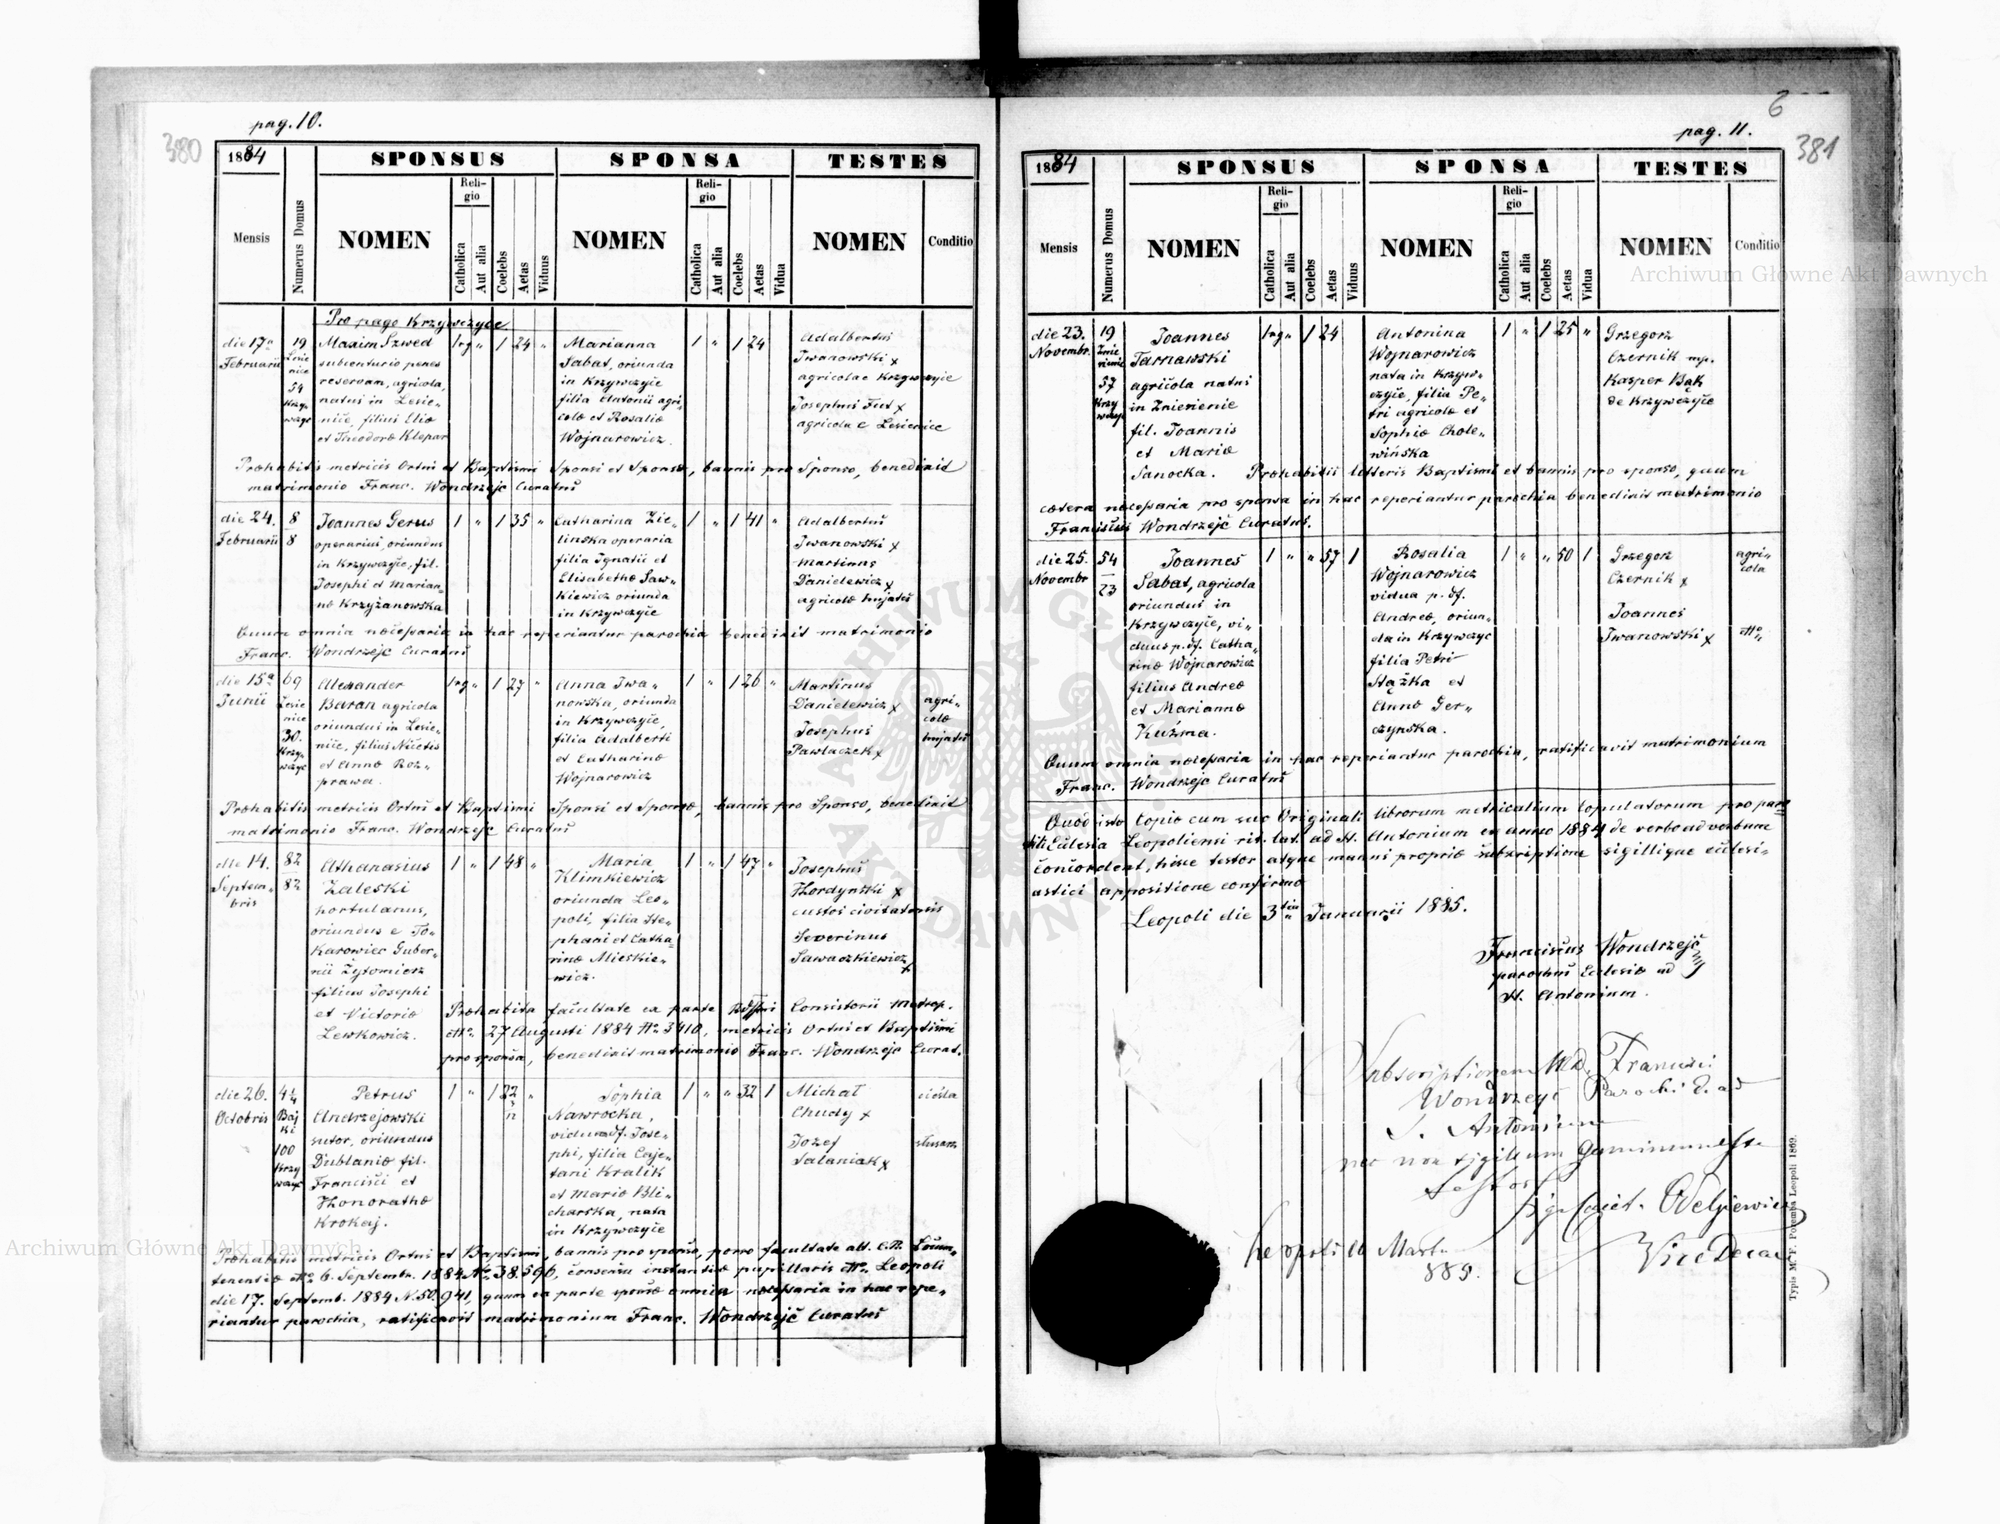 pag. 10.
380
1884
SPONSUS
SPONSA
TESTES
Mensis
Numerus Domus
NOMEN
Religio
Catholica
Aut alia
Coelebs
Aetas
Viduus
NOMEN
Religio
Catholica
Aut alia
Coelebs
Aetas
Vidua
NOMEN
Conditio
Pro pago Krzywczyce
die 17a
Februarii
19
Lesie
nice
54
Krzy
wczyc
Maxim Szwed
subcenturio penes
reservam, agricola,
natus in Lesie-
nice, filius Eliæ
et Theodoræ Klepar
1rg " 1 24 "
Marianna
Sabat, oriunda
in Krzywczyce
filia Antonii agri-
colæ et Rosaliæ
Wojnarowicz.
1 " 1 24
Adalbertus
Iwanowski x
agricola e Krzywczyce
Josephus Fut x
agricola e Lesienice
Præhabitis metricis Ortus et Baptismi Sponsi et Sponsæ, bannis pro Sponso, benedixit
matrimonio Franc. Wondrzejc Curatus
die 24.
Februarii
8
8
Joannes Gerus
operarius, oriundus
in Krzywczyce, fil.
Josephi et Marian-
næ Krzyżanowska
1 " 1 35 "
Catharina Zie-
linska operaria
filia Ignatii et
Elisabethæ Saw-
kiewicz oriunda
in Krzywczyce
1 " 1 41 "
Adalbertus
Iwanowski x
Martinus
Danielewicz x
agricolæ hujates
Quum omnia necessaria in hac reperiantur parochia benedixit matrimonio
Franc. Wondrzejc Curatus
die 15a
Junii
69
Lesie
nice
30.
Krzy-
wczyc
Alexander
Baran agricola
oriundus in Lesie-
nice, filius Nicetis
et Annæ Roz-
prawa.
1rg " 1 27 "
Anna Iwa-
nowska, oriunda
in Krzywczyce,
filia Adalberti
et Catharinæ
Wojnarowicz
1 " 1 26 "
Martinus
Danielewicz x
Josephus
Pawlaczek x
agri-
colæ
hujates
Præhabitis metricis Ortus et Baptismi Sponsi et Sponsæ, bannis pro Sponso, benedixit
matrimonio Franc. Wondrzejc Curatus
die 14.
Septem-
bris
82
82
Athanasius
Zaleski
hortulanus,
oriundus e To-
karowiec Guber-
nii Żytomierz
filius Josephi
et Victoriæ
Lewkowicz.
1 " 1 48 "
Maria
Klimkiewicz
oriunda Leo-
poli, filia Ste-
phani et Catha-
rinæ Mieskie-
wicz.
1 " 1 47 "
Josephus
Hordynski x
custos civitatensis
Severinus
Sawaczkiewicz x
Præhabita facultate ex parte Rdssmi Consistorii Metrop.
dtto. 27 Augusti 1884 No 3410, metricis Ortus et Baptismi
pro sponsa, benedixit matrimonio Franc. Wondrzejc Curat.
die 26.
Octobris
4¼
Baj
ki
100
Krzy
wczyc
Petrus
Andrzejowski
sutor, oriundus
Dublaniæ fil.
Francisci et
Honorathæ
Krokaj.
1 " 1 22 "
Sophia
Nawrocka,
vidua df. Jose-
phi, filia Caje-
tani Kralik
et Mariæ Bli-
charska, nata
in Krzywczyce
1 " " 32 1
Michał
Chudy x
Jozef
Salaniak x
cieśla
slusarz
Præhabitis metricis Ortus et Baptismi, bannis pro sponso, porro facultate alt. C.R. Locum-
tenentiæ dtto 6. Septembr. 1884 No 38.596, consensu instantiæ pupillaris dtto. Leopoli
die 17. Septemb. 1884 N. 50.941, quum ex parte sponsæ omnia necessaria in hac repe-
riantur parochia, ratificavit matrimonium Franc. Wondrzejc Curatus
6
pag. 11.
381
1884
SPONSUS
SPONSA
TESTES
Mensis
Numerus Domus
NOMEN
Religio
Catholica
Aut alia
Coelebs
Aetas
Viduus
NOMEN
Religio
Catholica
Aut alia
Coelebs
Aetas
Vidua
NOMEN
Conditio
die 23.
Novembr.
19
Znie
sienie
57
Krzy
wczyc
Joannes
Tarnawski
agricola natus
in Zniesienie
fil. Joannis
et Mariæ
Sanocka.
1rg " 1 24
Antonina
Wojnarowicz
nata in Krzyw-
czyce, filia Pe-
tri agricolæ et
Sophiæ Chole-
wińska
1 " 1 25 "
Grzegorz
Czernik mp.
Kasper Bąk
de Krzywczyce
Præhabitis litteris Baptismi et bannis pro sponso, quum
cætera necessaria pro sponsa in hac reperiantur parochia benedixit matrimonio
Franciscus Wondrzejc Curatus.
die 25.
Novembr
54
23
Joannes
Sabat, agricola
oriundus in
Krzywczyce, vi-
duus p. df. Catha-
rinæ Wojnarowicz
filius Andreæ
et Mariannæ
Kuźma.
1 " " 57 1
Rosalia
Wojnarowicz
vidua p. df.
Andreæ, oriun-
da in Krzywczyc
filia Petri
Stążka et
Annæ Ger-
czynska.
1 " " 50 1
Grzegorz
Czernik x
Joannes
Iwanowski x
agri-
cola
dtto.
Quum omnia necessaria in hac reperiantur parochia, ratificavit matrimonium
Franc. Wondrzejc Curatus
Quod isto Copia cum suo Originali librorum metricalium Copulatorum pro paro
Ecclesia Leopoliensi rit. lat. ad St. Antonium ex anno 1884 de verbo ad verbum
concordent, hisce testor atque manus propriæ subscriptione sigillique ecclesi-
astici appositione confirmo
Leopoli die 3tia Januarii 1885.
Franciscus Wondrzejc
parochus Ecclesiæ ad
St. Antonium.
Subscriptionem Franusci
Wondrzejc Parochi E. ad
S. Antonium
nec non sigillum genuinum esse
testor
Leopoli 16 Mart
885.
Vice Decan
Typis M. F. Poremba Leopoli 1869.
Archiwum Główne Akt Dawnych
Archiwum Główne Akt Dawnych
ARCHIWUM GŁÓWNE AKT DAWNYCH